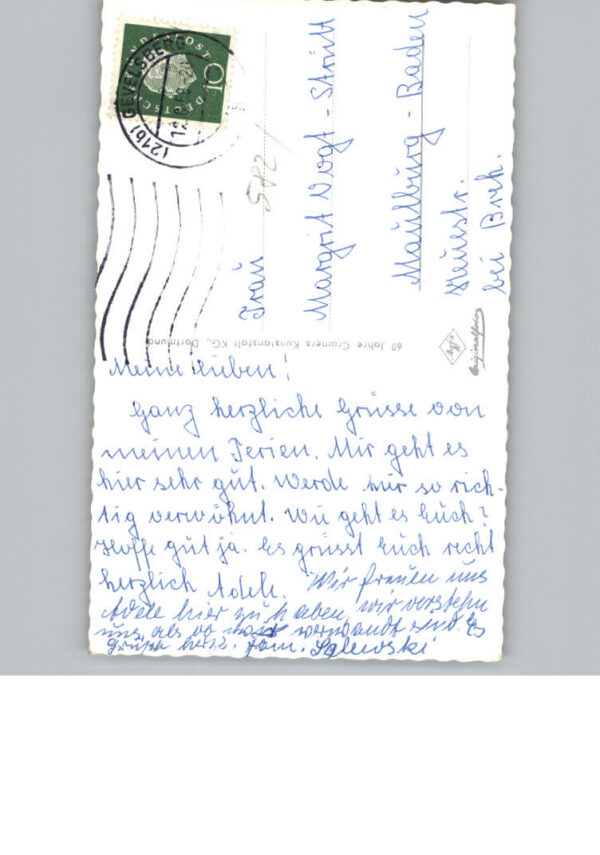 Meine Lieben!
Ganz herzliche Grüsse von
meinen Ferien. Mir geht es
hier sehr gut. Werde hier so rich-
tig verwöhnt. Wie geht es Euch?
Hoffe gut ja. Es grüsst Euch recht
herzlich Adele. Wir freuen uns
Adele hier zu haben, wir verstehn
uns, als ob verwandt sind. Es
Fam. Salewski
Frau
Margrit Vogt - Strütt
Maulburg - Baden
Neuestr.
582
60 Jahre Cramers Kunstanstalt KG., Dortmund
Agfa
Originalfoto
DEUTSCHE BUNDESPOST
10
(21b) GEVELSBERG